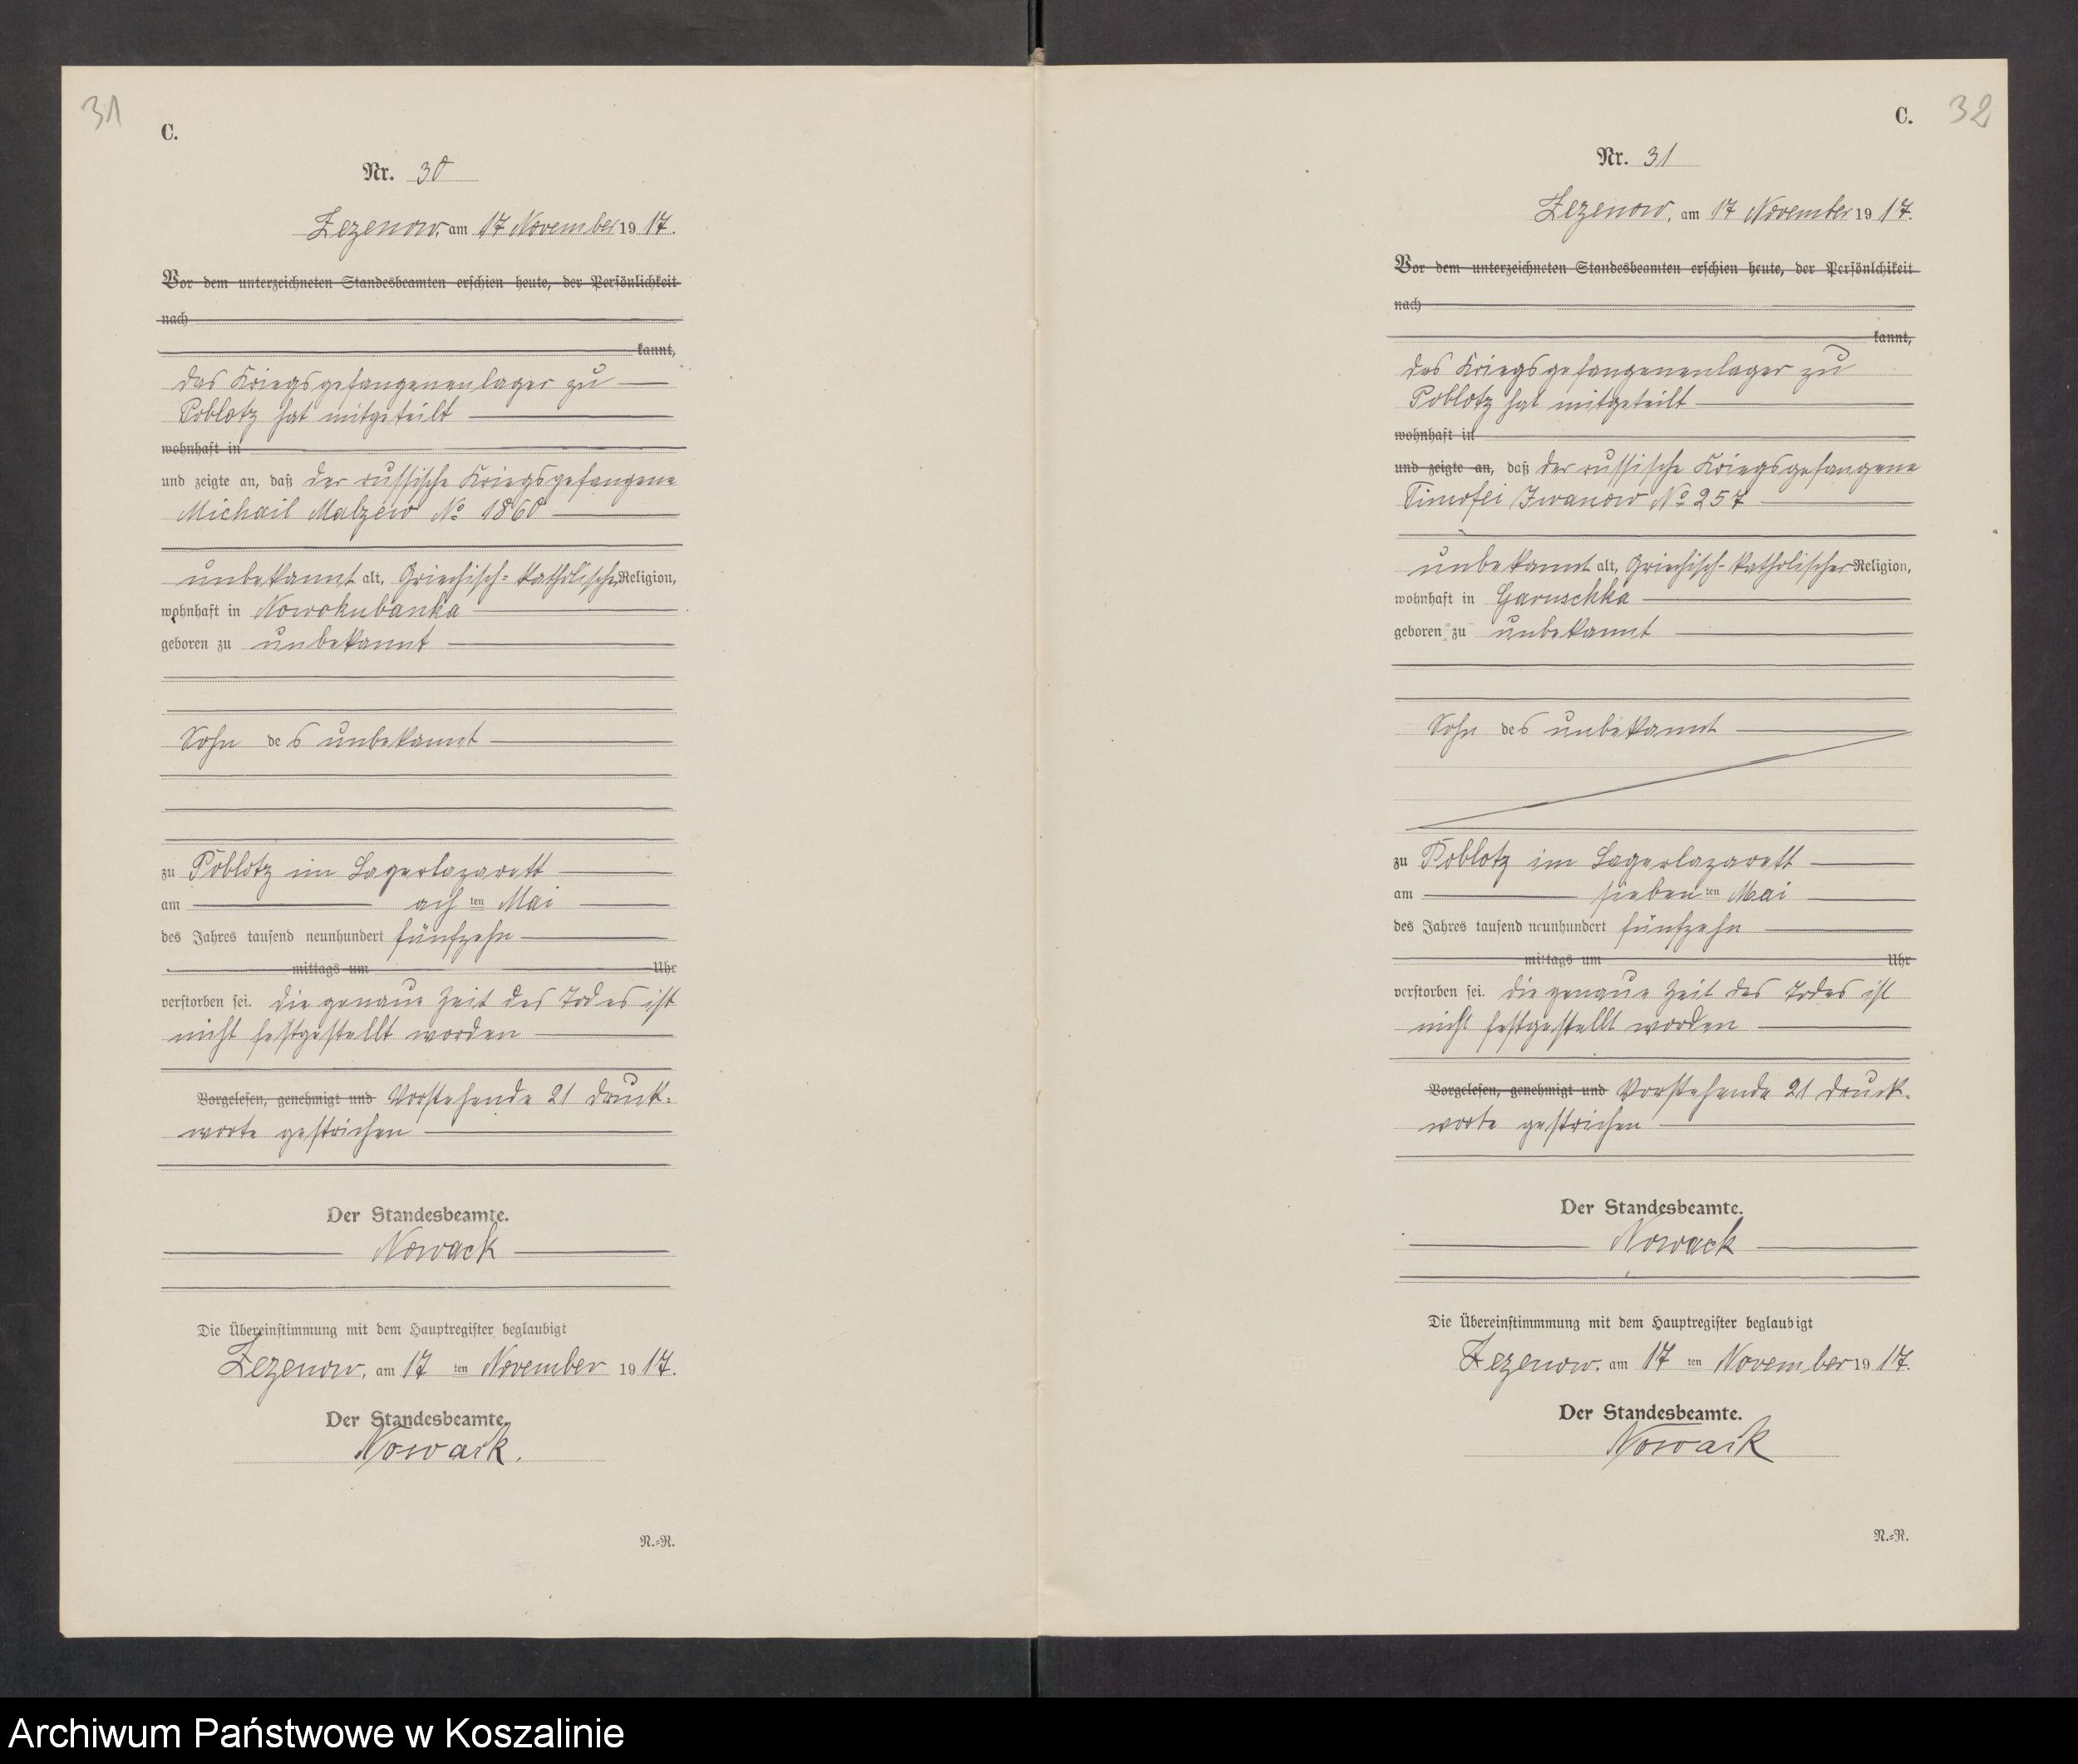 31
C.
Nr. 30
Zezenow, am 17 November 1917.
Vor dem unterzeichneten Standesbeamten erschien heute, der Persönlichkeit
nach
kannt,
das Kriegsgefangenenlager zu
Poblotz hat mitgeteilt
wohnhaft in
und zeigte an, daß der russische Kriegsgefangene
Michail Malzew No 1860
unbekannt alt, Griechisch-katholischer Religion,
wohnhaft in Nowokubanka
geboren zu unbekannt
Sohn des unbekannt
zu Poblotz im Lagerlazarett
am ach ten Mai
des Jahres tausend neunhundert fünfzehn
mittags um Uhr
verstorben sei. die genaue Zeit des Todes ist
nicht festgestellt worden
Vorgelesen, genehmigt und Vorstehende 21 Druck-
worte gestrichen
Der Standesbeamte.
Nowack
Die Übereinstimmung mit dem Hauptregister beglaubigt
Zezenow, am 17 ten November 1917.
Der Standesbeamte.
Nowack.
N.-R.
32
C.
Nr. 31
Zezenow, am 17 November 1917.
Vor dem unterzeichneten Standesbeamten erschien heute, der Persönlchikeit
nach
kannt,
das Kriegsgefangenenlager zu
Poblotz hat mitgeteilt
wohnhaft in
und zeigte an, daß der russische Kriegsgefangene
Timofei Iwanow No 257
unbekannt alt, Griechisch-katholischer Religion,
wohnhaft in Garuschka
geboren zu unbekannt
Sohn des unbekannt
zu Poblotz im Lagerlazarett
am sieben ten Mai
des Jahres tausend neunhundert fünfzehn
mittags um Uhr
verstorben sei. die genaue Zeit des Todes ist
nicht festgestellt worden
Vorgelesen, genehmigt und Vorstehende 21 Druck-
worte gestrichen
Der Standesbeamte.
Nowack
Die Übereinstimmmung mit dem Hauptregister beglaubigt
Zezenow, am 17 ten November 1917.
Der Standesbeamte.
Nowack
N.-R.
Archiwum Państwowe w Koszalinie